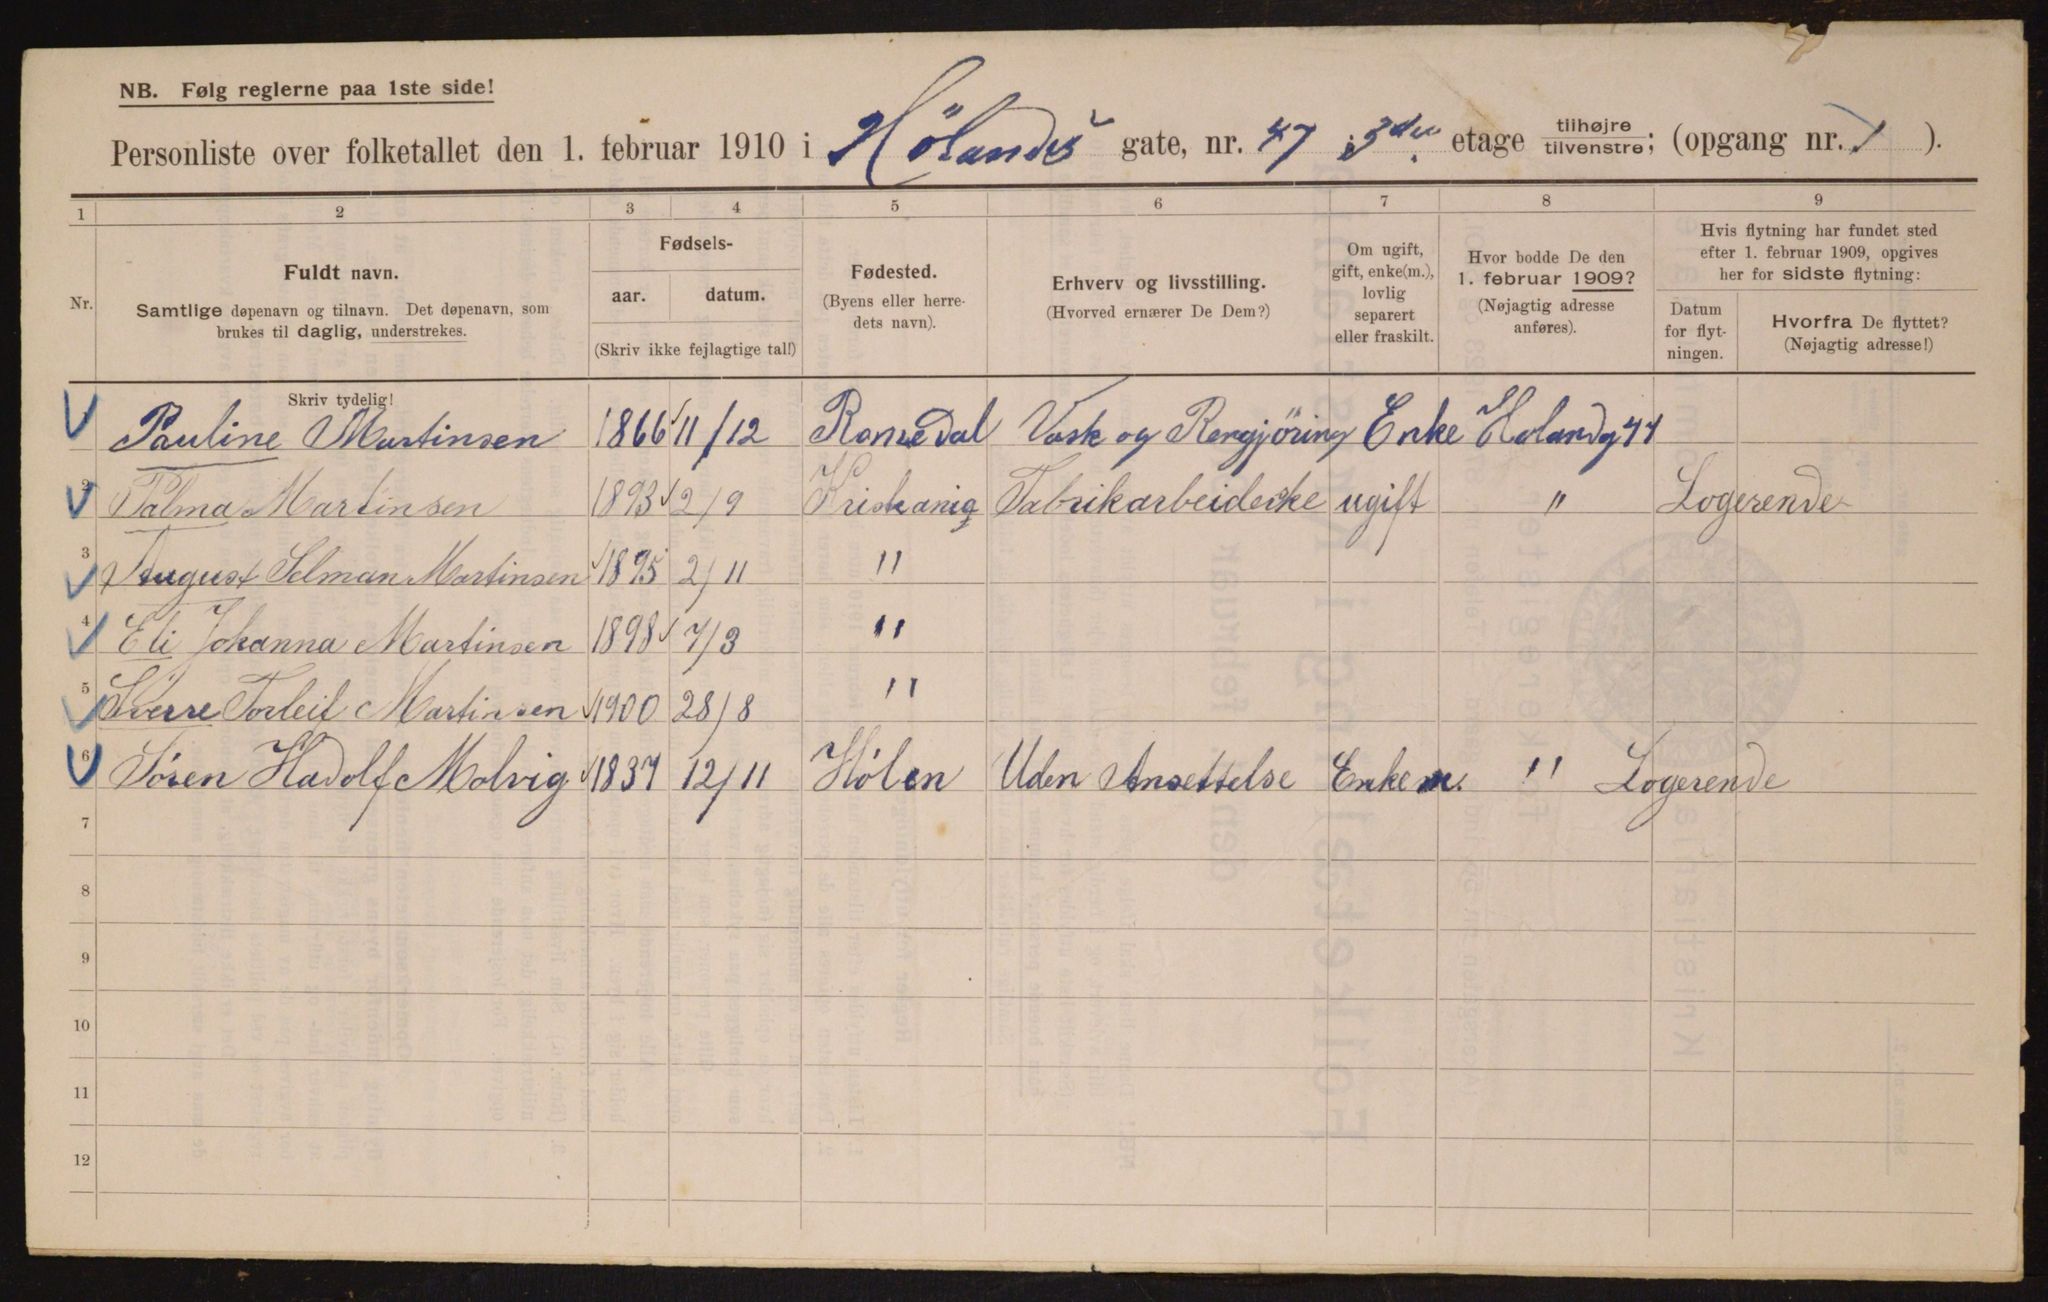 NB. Følg reglerne paa 1ste side!
Personliste over folketallet den 1. februar 1910 i Hölands gate, nr. 47 3die etage tilhøjre tilvenstre; (opgang nr. 1 ).
1 2 3 4 5 6 7 8 9
Nr. Fuldt navn. Samtlige døpenavn og tilnavn. Det døpenavn, som brukes til daglig, understrekes.
Fødsels- aar. datum. (Skriv ikke fejlagtige tal!)
Fødested. (Byens eller herredets navn).
Erhverv og livsstilling. (Hvorved ernærer De Dem?)
Om ugift, gift, enke(m.), lovlig separert eller fraskilt.
Hvor bodde De den 1. februar 1909? (Nøjagtig adresse anføres).
Hvis flytning har fundet sted efter 1. februar 1909, opgives her for sidste flytning:
Datum for flytningen. Hvorfra De flyttet? (Nøjagtig adresse!)
Skriv tydelig!
Pauline Martinsen 1866 11/12 Romsdal Vask og Rengjöring Enke Holandg 44
2 Palma Martinsen 1893 2/9 Kristania Fabrikarbeiderske ugift " Logerende
3 August Selman Martinsen 1895 2/11 "
4 Eli Johanna Martinsen 1898 7/3 "
5 Sverre Torleif Martinsen 1900 28/8 "
6 Sören Hadolf Molvig 1837 12/11 Hölen Uden Ansettelse Enkem. " Logerende
7
8
9
10
11
12